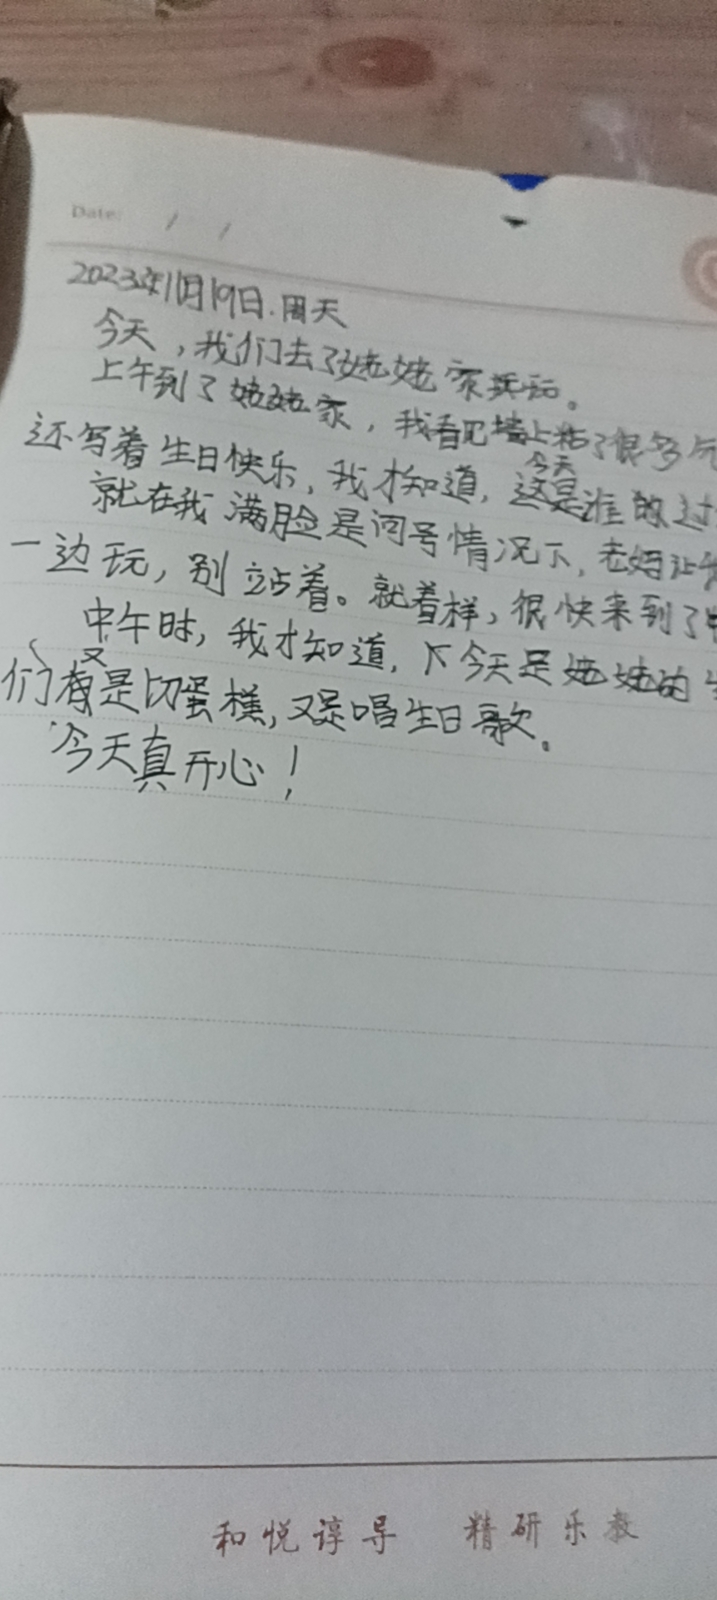 Date: / /
2023年11月19日.周天
今天,我们去了姥姥家玩。
上午到了姥姥家,我看见墙上粘了很多气
还写着生日快乐,我才知道,今天这是谁的过
就在我满脸是问号情况下,老妈让我
一边玩,别站着。就着样,很快来到了中
中午时,我才知道,今天是姥姥的生
们又是切蛋糕,又是唱生日歌。
今天真开心!
和悦谆导 精研乐教